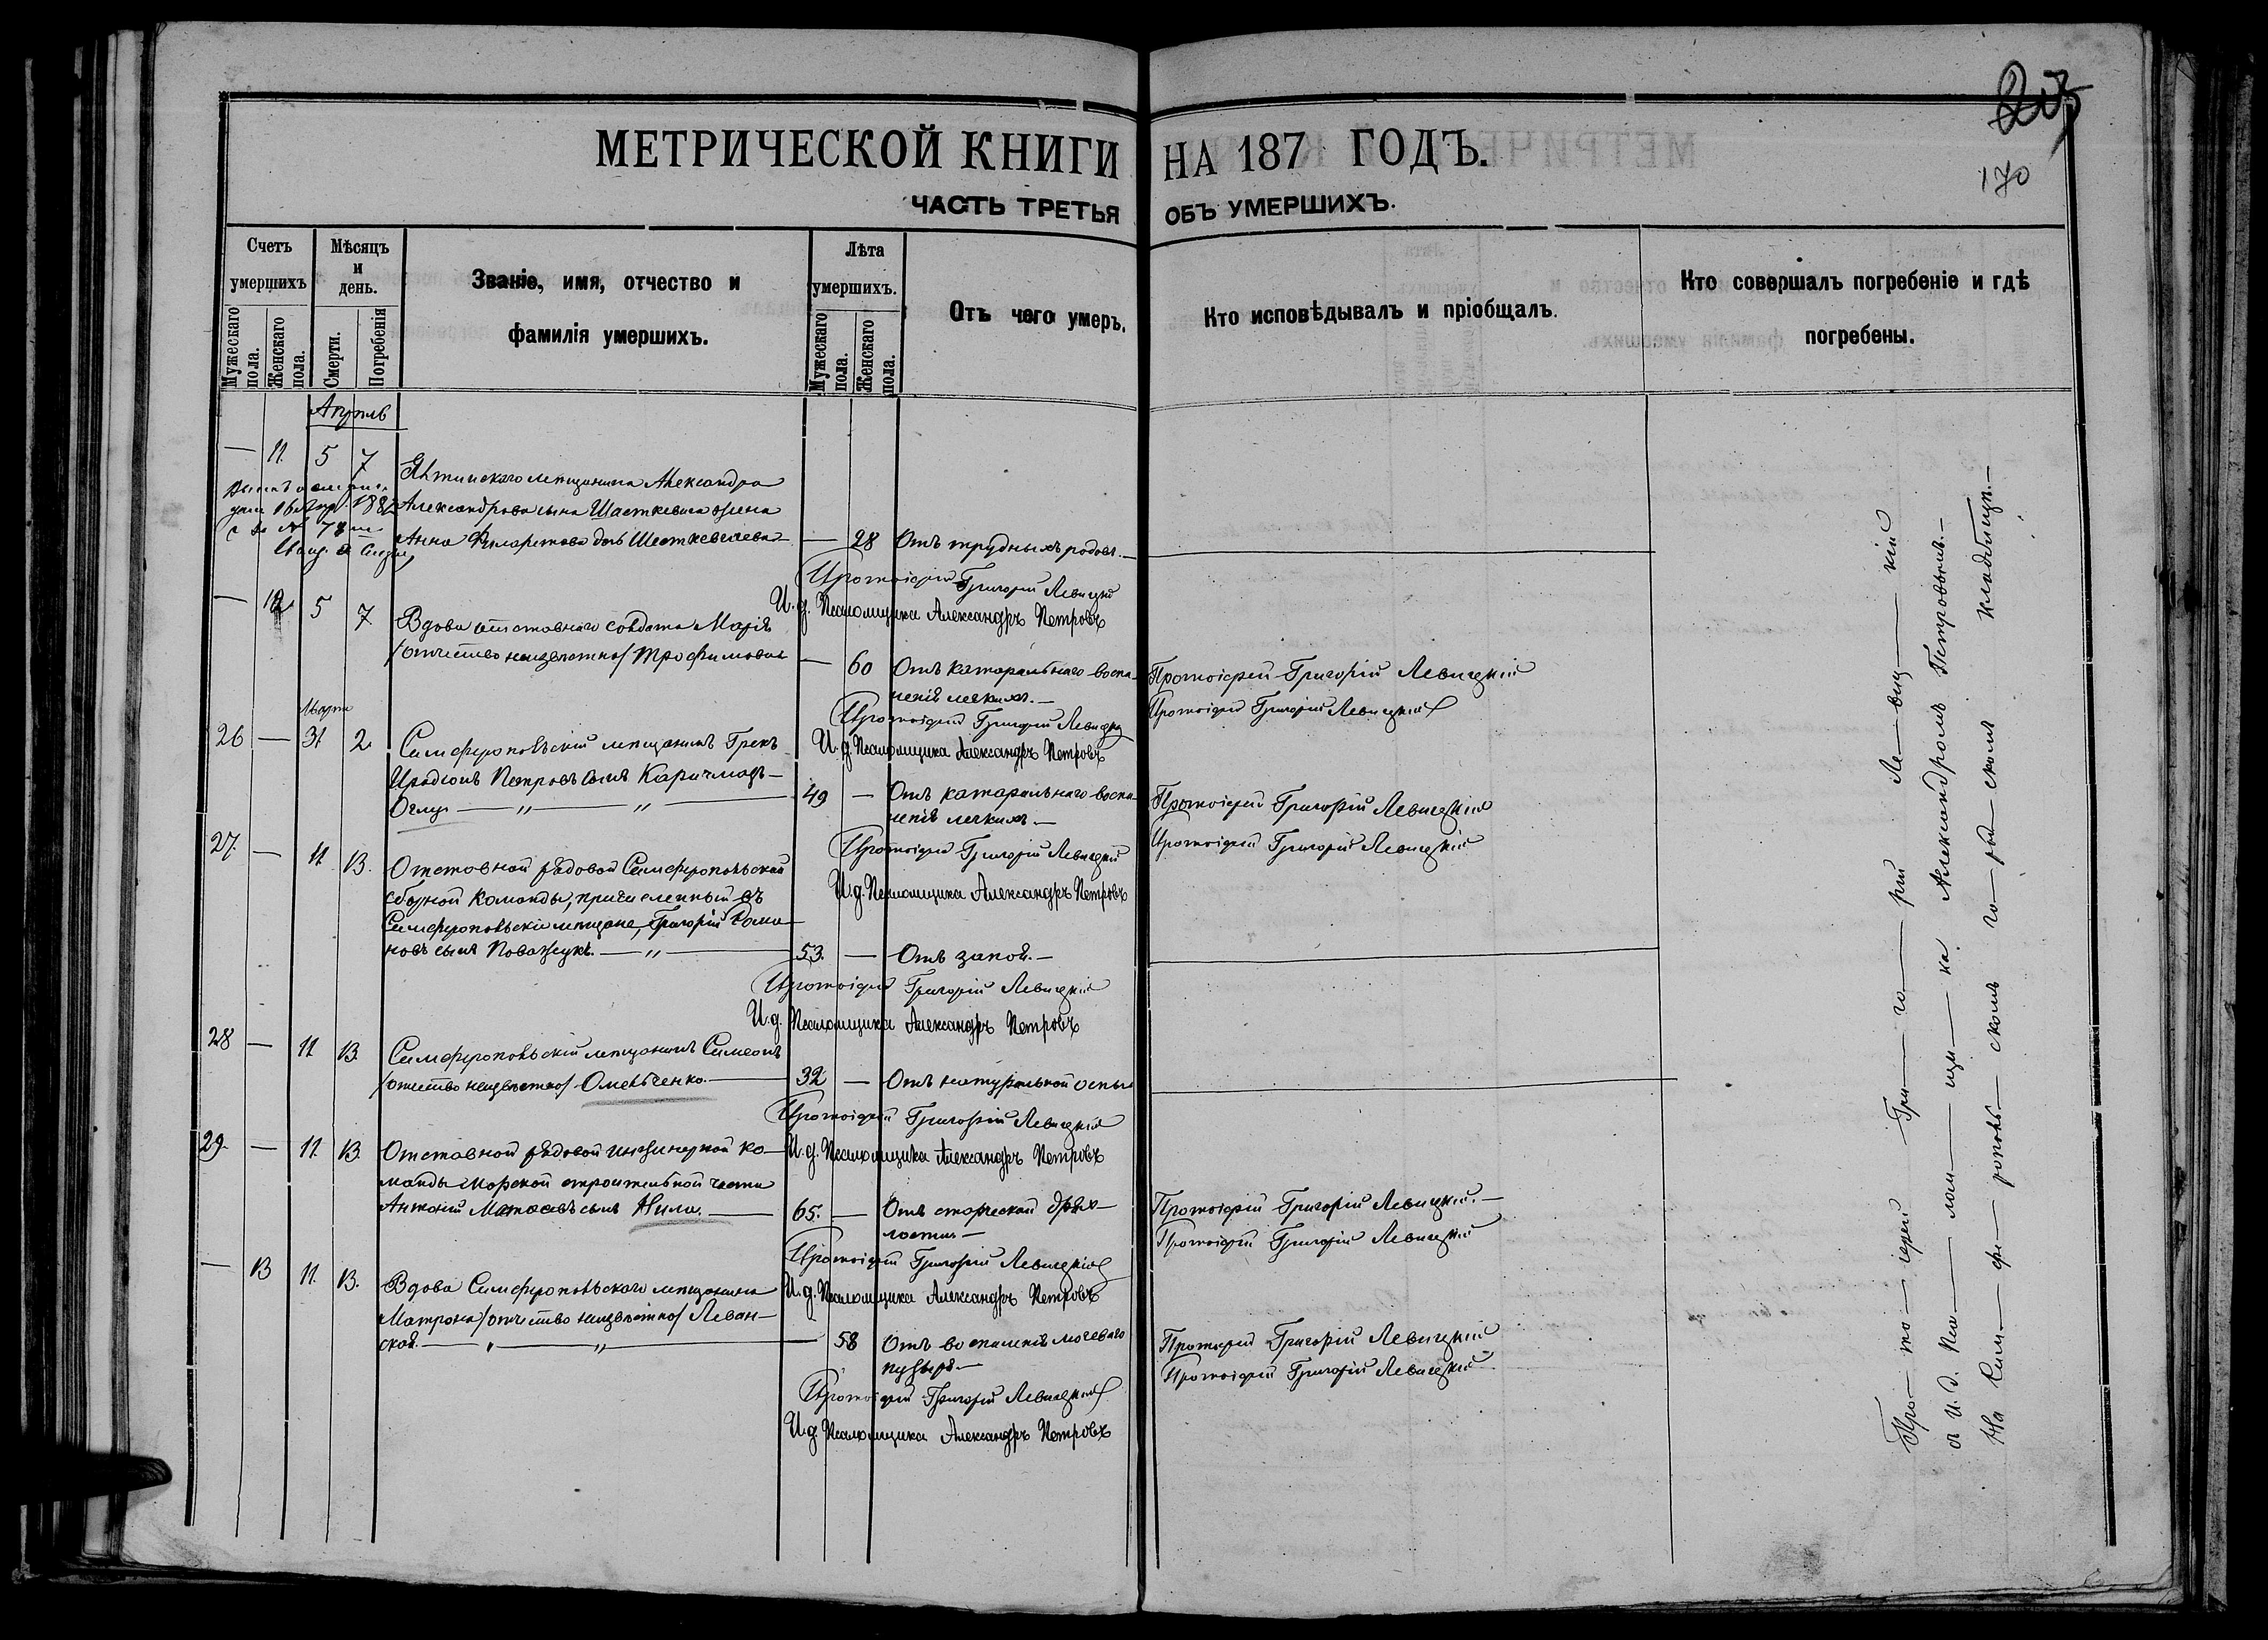 205
170
МЕТРИЧЕСКОЙ КНИГИ НА 187 ГОДЪ.
ЧАСТЬ ТРЕТЬЯ ОБЪ УМЕРШИХЪ.
Счетъ умершихъ
Мужескаго пола.
Женскаго пола.
Мѣсяцъ и день.
Смерти.
Погребенія
Званіе, имя, отчество и
фамилія умершихъ.
Лѣта умершихъ.
Мужескаго пола.
Женскаго пола.
Отъ чего умеръ.
Кто исповѣдывалъ и пріобщалъ.
Кто совершалъ погребеніе и гдѣ
погребены.
Апрѣль
— 11. 5 7
Ялтинскаго мѣщанина Александра
Александрова сына Шасткевича жена
Анна Филаретова дочь Шесткевичева — 28 Отъ трудныхъ родовъ. —
Протоіерей Григорій Левицкій
И. д. Псаломщика Александръ Петровъ
— 12 5 7.
Вдова отставнаго солдата Марія
/отчество неизвѣстно/ Трофимова — 60 Отъ катаральнаго воспа- Протоіерей Григорій Левицкій
ленія легкихъ. —
Протоіерей Григорій Левицкій Протоіерей Григорій Левицкій
И. д. Псаломщика Александръ Петровъ
Марта
26 — 31 2.
Симферопольскій мѣщанинъ Грекъ
Иродіонъ Петровъ сынъ Каричмадъ-
Оглу — „ — „ — 49 — Отъ катаральнаго воспа- Протоіерей Григорій Левицкій
ленія легкихъ. —
Протоіерей Григорій Левицкій Протоіерей Григорій Левицкій
И. д. Псаломщика Александръ Петровъ
27. — 11. 13.
Отставной рядовой Симферопольской
сборной команды, причисленный въ
Симферопольскіе мѣщане, Григорій Рома-
новъ сынъ Поважукъ. — „ — 53. — Отъ запоя. —
Протоіерей Григорій Левицкій
И. д. Псаломщика Александръ Петровъ
28 — 11 13
Симферопольскій мѣщанинъ Симеонъ
/отчество неизвѣстно/ Омельченко. — 32 — Отъ натуральной оспы
Протоіерей Григорій Левицкій
И. д. Псаломщика Александръ Петровъ
29. — 11. 13.
Отставной рядовой инженерной ко-
манды Морской строительной части
Антоній Матвѣевъ сынъ — 65. — Отъ старческой дрях- Протоіерей Григорій Левицкій. —
лости —
Протоіерей Григорій Левицкій Протоіерей Григорій Левицкій
И. д. Псаломщика Александръ Петровъ
— 13 11. 13.
Вдова Симферопольскаго мѣщанина
Матрона /отчество неизвѣстно/ Леван-
ская. — „ — „ — 58 Отъ воспаленія мочеваго Протоіерей Григорій Левицкій
пузыря — Протоіерей Григорій Левицкій
Протоіерей Григорій Левицкій
И. д. Псаломщика Александръ Петровъ
Про — то — іерей Гри — го — рій Ле — виц — кій
съ И. д. Пса — лом — щи — ка Александромъ Петровымъ. —
На Сим — фе — рополь — скомъ го — род — скомъ кладбищѣ. —